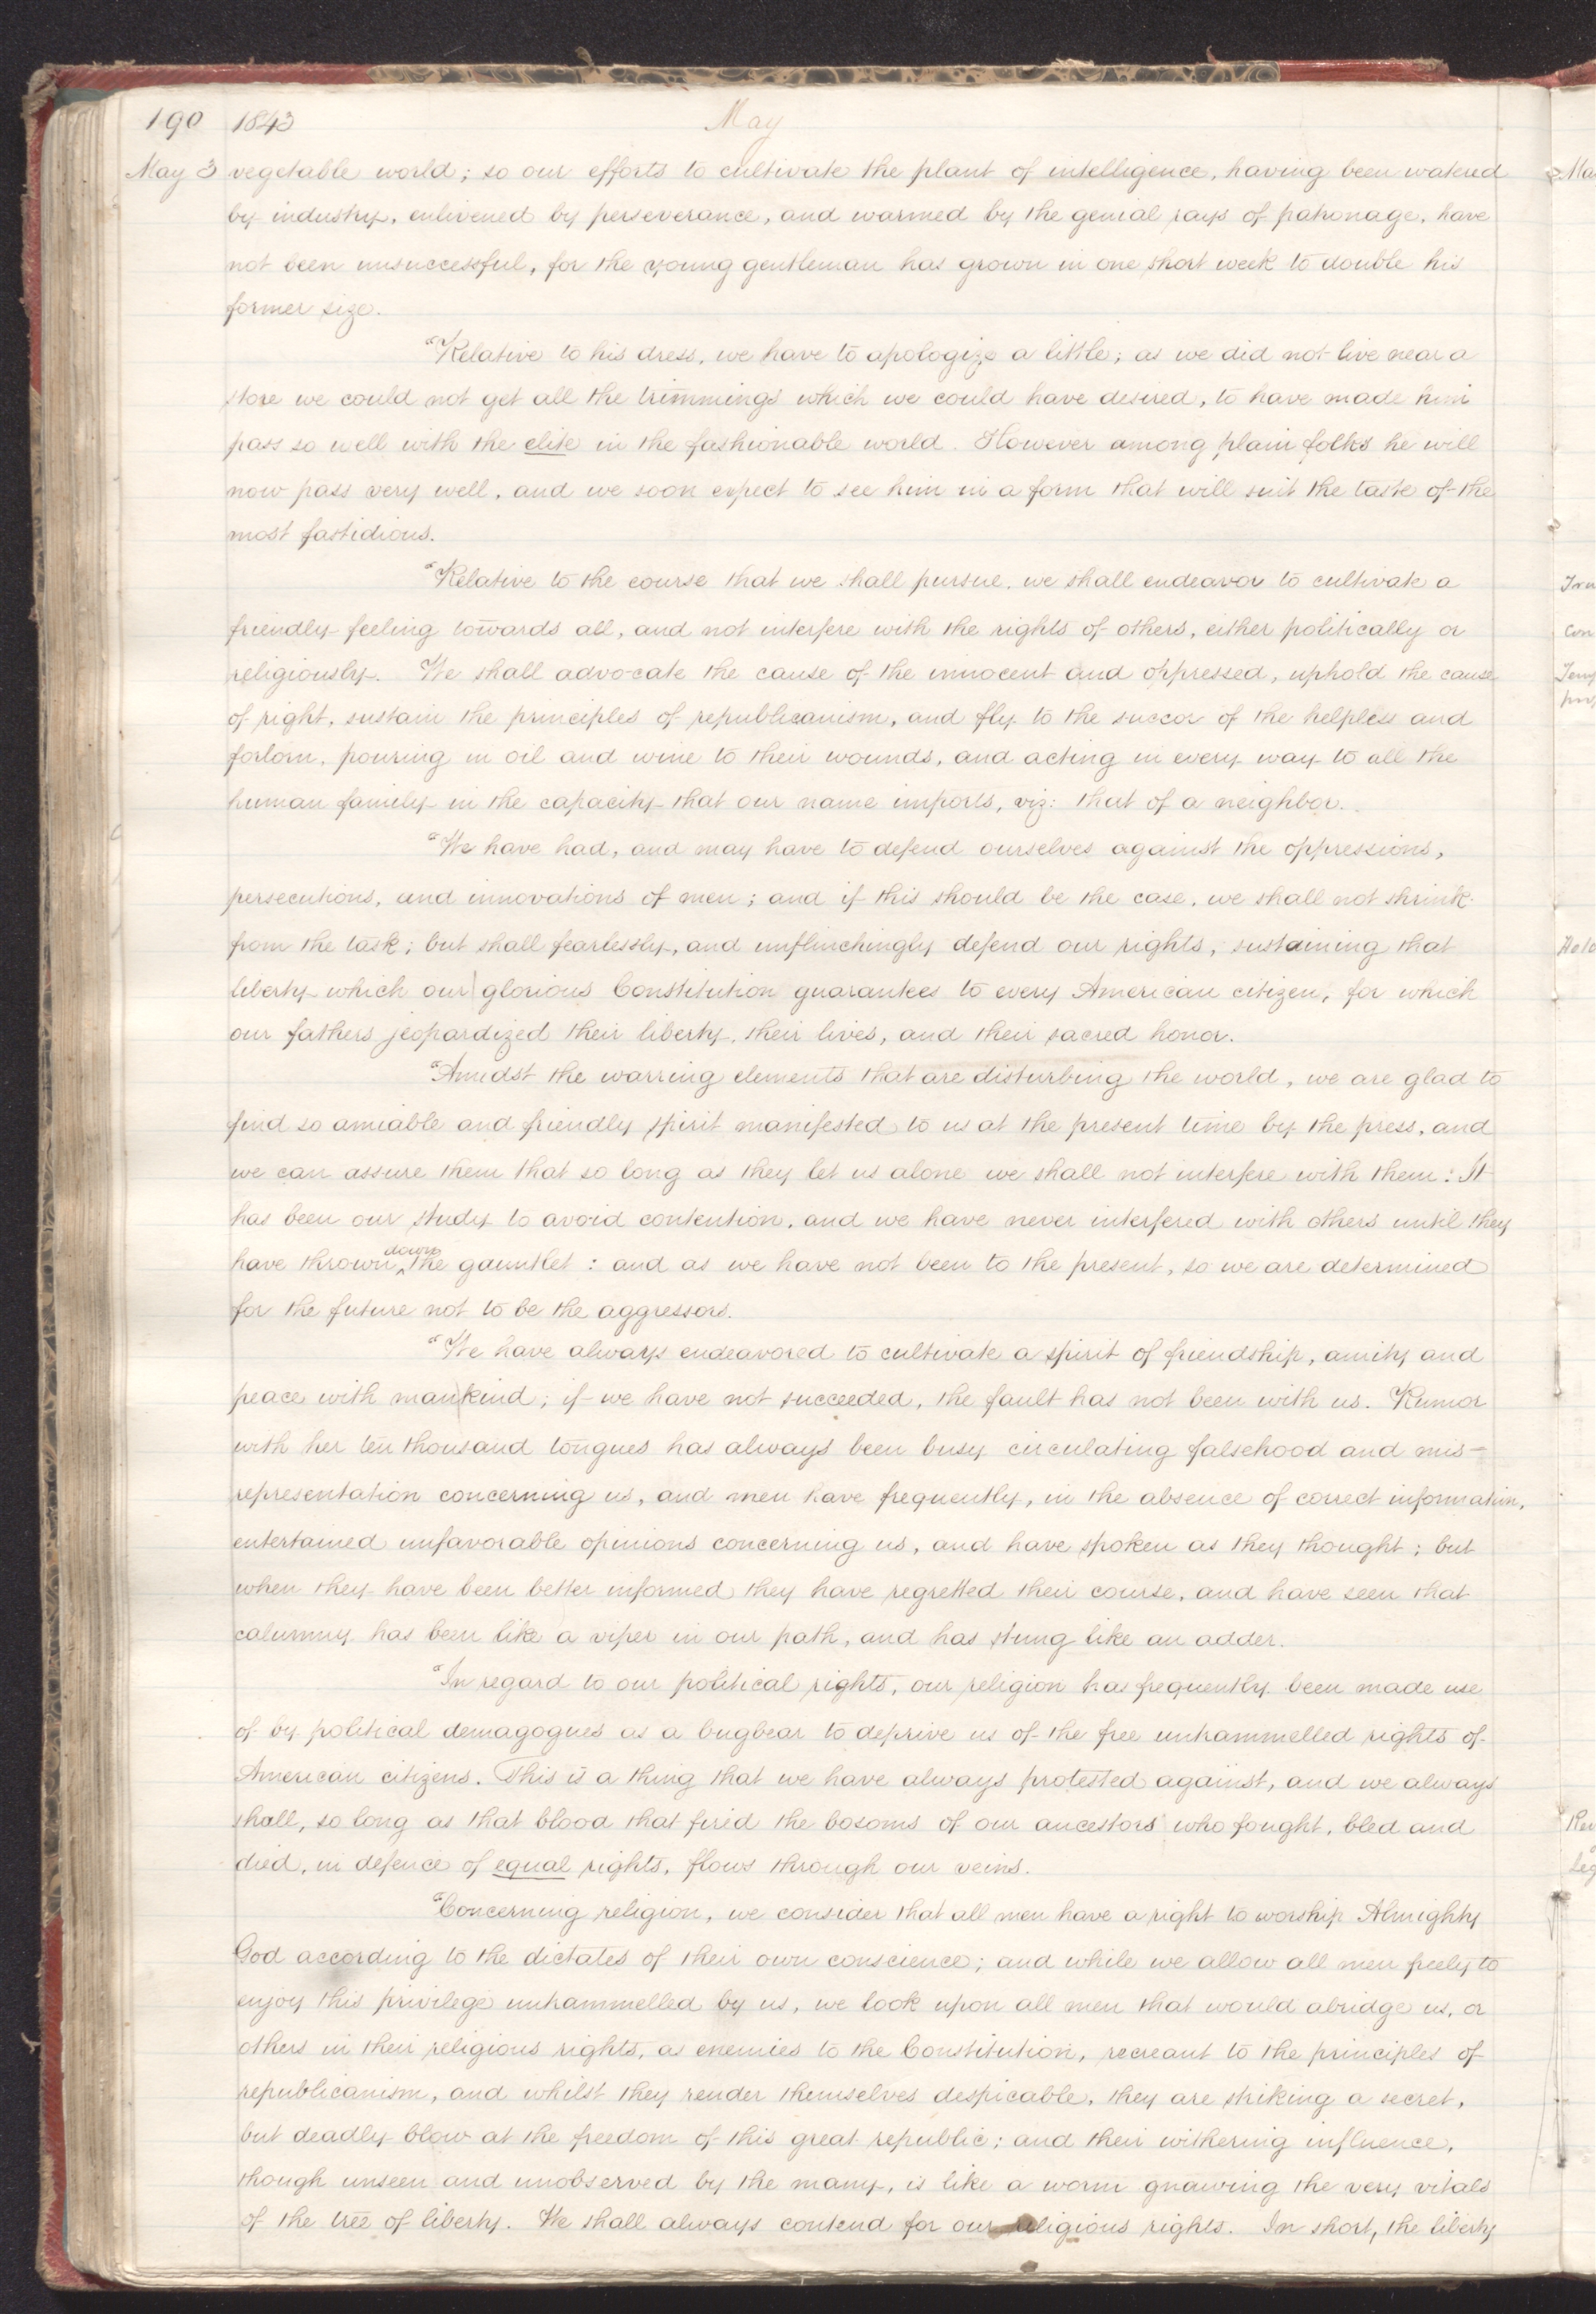 190 1843 May
May 3 vegetable world; so our efforts to cultivate the plant of intelligence, having been watered
by industry, enlivened by perseverance, and warmed by the genial rays of patronage, have
not been unsuccessful, for the young gentleman has grown in one short week to double his
former size.
"Relative to his dress, we have to apologize a little; as we did not live near a
store we could not get all the trimmings which we could have desired, to have made him
pass so well with the elite in the fashionable world. However among plain folks he will
now pass very well, and we soon expect to see him in a form that will suit the taste of the
most fastidious.
"Relative to the course that we shall pursue, we shall endeavor to cultivate a
friendly feeling towards all, and not interfere with the rights of others, either politically or
religiously. We shall advocate the cause of the innocent and oppressed, uphold the cause
of right, sustain the principles of republicanism, and fly to the succor of the helpless and
forlorn, pouring in oil and wine to their wounds, and acting in every way to all the
human family in the capacity that our name imports, viz: that of a neighbor.
"We have had, and may have to defend ourselves against the oppressions,
persecutions, and innovations of men; and if this should be the case, we shall not shrink
from the task; but shall fearlessly, and unflinchingly defend our rights, sustaining that
liberty which our glorious Constitution guarantees to every American citizen, for which
our fathers jeopardized their liberty, their lives, and their sacred honor.
"Amidst the warring elements that are disturbing the world, we are glad to
find so amiable and friendly spirit manifested to us at the present time by the press, and
we can assure them that so long as they let us alone we shall not interfere with them: It
has been our study to avoid contention, and we have never interfered with others until they
have thrown down the gauntlet: and as we have not been to the present, so we are determined
for the future not to be the aggressors.
"We have always endeavored to cultivate a spirit of friendship, amity and
peace with mankind; if we have not succeeded, the fault has not been with us. Rumor
with her ten thousand tongues has always been busy circulating falsehood and mis-
representation concerning us, and men have frequently, in the absence of correct information,
entertained unfavorable opinions concerning us, and have spoken as they thought; but
when they have been better informed they have regretted their course, and have seen that
calumny has been like a viper in our path, and has stung like an adder.
"In regard to our political rights, our religion has frequently been made use
of by political demagogues as a bugbear to deprive us of the free untrammelled rights of
American citizens. This is a thing that we have always protested against, and we always
shall, so long as that blood that fired the bosoms of our ancestors who fought, bled and
died, in defence of equal rights, flows through our veins.
"Concerning religion, we consider that all men have a right to worship Almighty
God according to the dictates of their own conscience; and while we allow all men freely to
enjoy this privilege untrammelled by us, we look upon all men that would abridge us, or
others in their religious rights, as enemies to the Constitution, recreant to the principles of
republicanism, and whilst they render themselves despicable, they are striking a secret,
but deadly blow at the freedom of this great republic; and their withering influence,
though unseen and unobserved by the many, is like a worm gnawing the very vitals
of the tree of liberty. We shall always contend for our religious rights. In short, the liberty